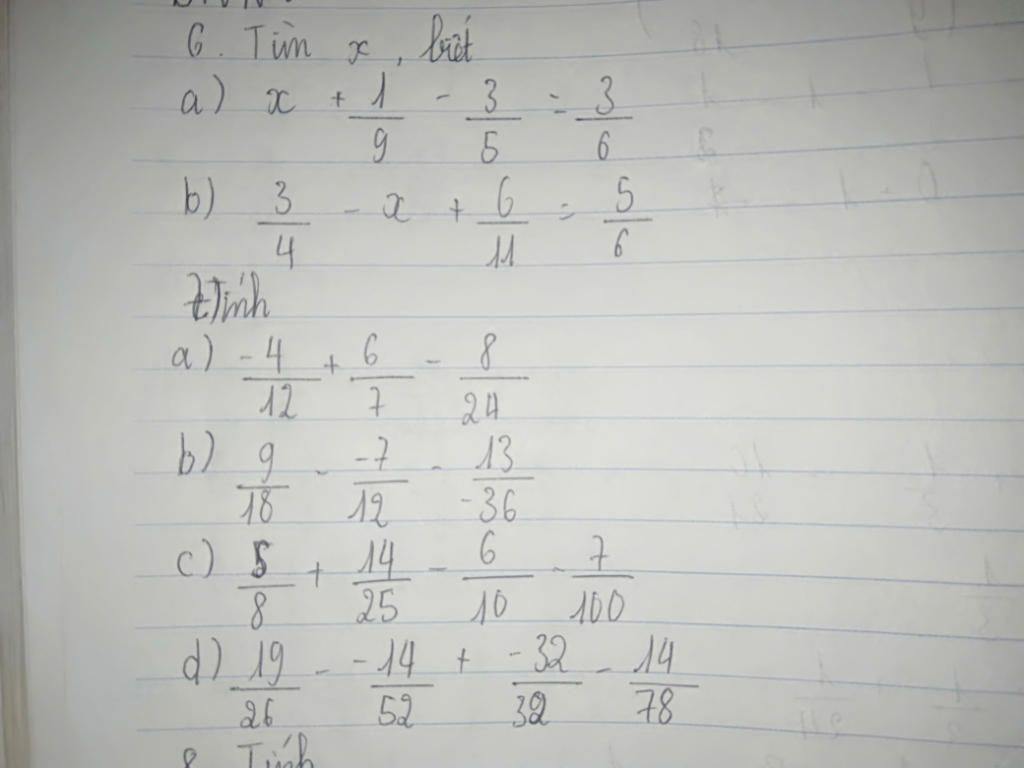 6. Tìm x, biết
a) x + 1/9 - 3/5 = 3/6
b) 3/4 - x + 6/11 = 5/6
7) Tính
a) -4/12 + 6/7 - 8/24
b) 9/18 - -7/12 - 13/-36
c) 5/8 + 14/25 - 6/10 - 7/100
d) 19/26 - -14/52 + -32/32 - 14/78
8. Tính